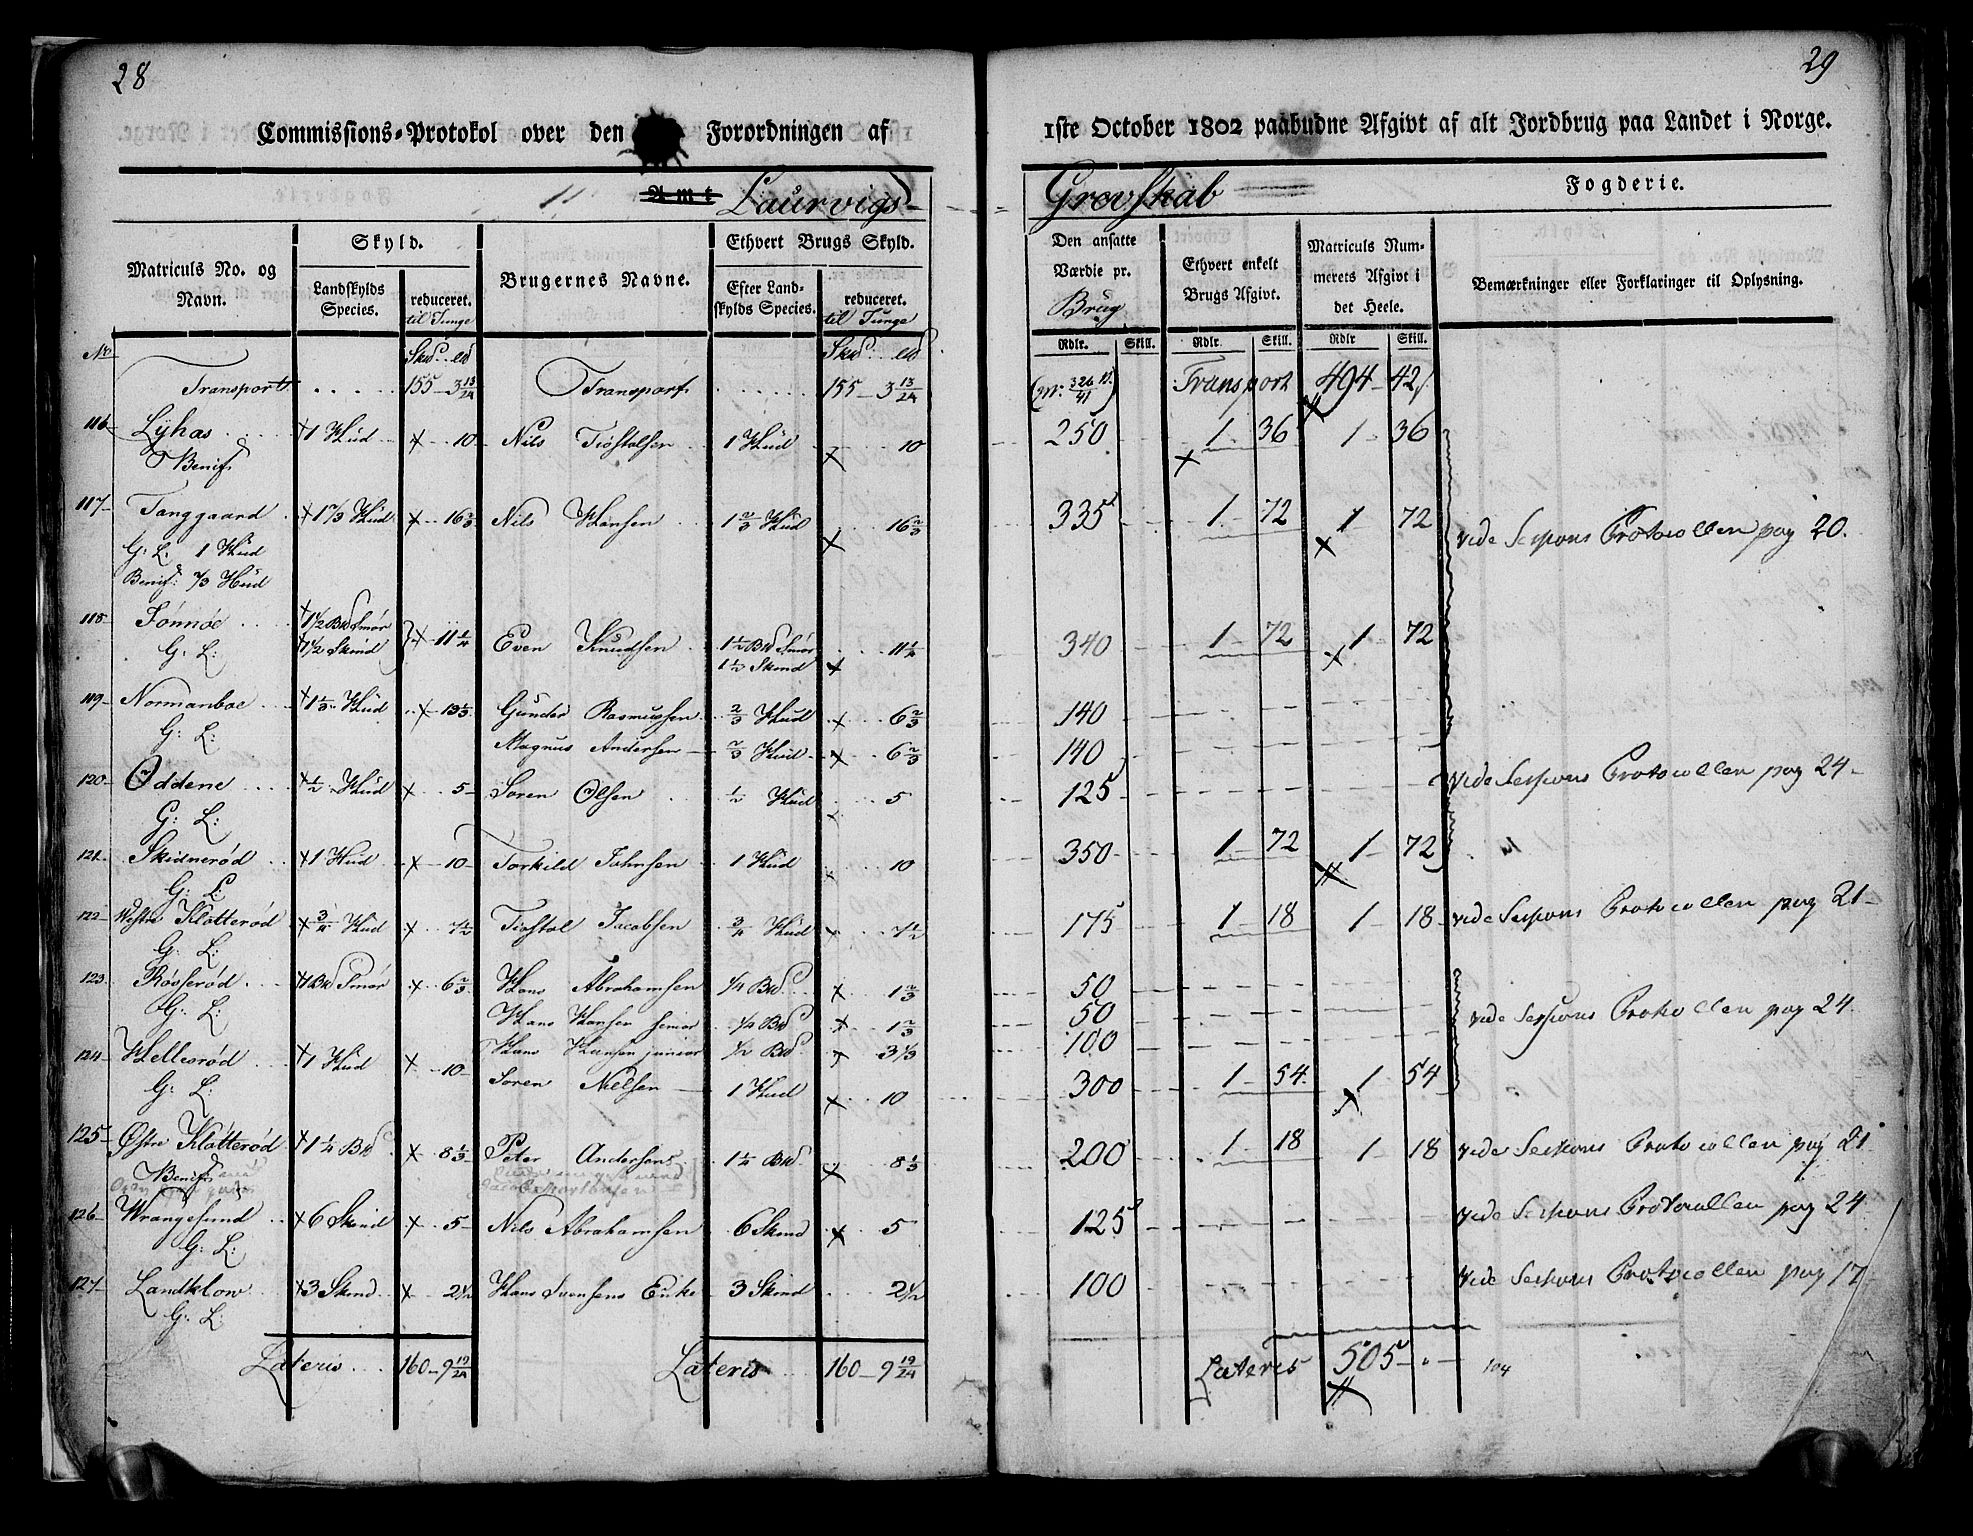 28
Commissions-Protokol over den Forordningen af
Amt Laurvigs
Matriculs No. og Navn.
Skyld.
Landskylds Species.
reduceret. til Tunge
Brugernes Navne.
Ethvert Brugs Skyld.
Efter Landskylds Species.
reduceret. til Tunge
No
Transport 155 - 3 13/24 Transport 155 - 3 13/24
116 Lyhas 1 Hud 10 Nils Tiostolsen 1 Hud 10
Benif:
117 Tanggaard 1 2/3 Hud 16 2/3 Nils Hansen 1 2/3 Hud 16 2/3
G: L: 1 Hud
Benif: 2/3 Hud
118 Fónnóe 1 1/2 Bd Smór 11 1/4 Even Knudsen 1 1/2 Bd Smór 11 1/4
G: L: 1 1/2 Skind 1 1/2 Skind
119 Normanboe 1 1/3 Hud 13 1/3 Gunder Rasmussen 2/3 Hud 6 2/3
G: L: Magnus Andersen 2/3 Hud 6 2/3
120 Oddene 1/2 Hud 5 Soren Olsen 1/2 Hud 5
G: L:
121 Skidnerød 1 Hud 10 Torkild Johnsen 1 Hud 10
G: L:
122 Westre Klotterød 3/4 Hud 7 1/2 Tiostol Jacobsen 3/4 Hud 7 1/2
G: L:
123 Røsserød 1 Bd Smør 6 2/3 Hans Abrahamsen 1/4 Bd 1 2/3
G: L: Hans Hansen senior 1/4 Bd 1 2/3
Hans Hansen junior 1/2 Bd 3 1/3
124 Hellesrød 1 Hud 10 Soren Nielsen 1 Hud 10
G: L:
125 Østre Klotterød 1 1/4 Bd 8 1/3 Peter Andersens 1 1/4 Bd 8 1/3
Benif:
126 Wrangesund 6 Skind 5 Nils Abrahamsen 6 Skind 5
G: L:
127 Landklow 3 Skind 2 1/2 Hans Svensens Enke 3 Skind 2 1/2
G: L:
Lateris 160 - 9 19/24 Lateris 160 - 9 19/24
29
1ste October 1802 paabudne Afgivt af alt Jordbrug paa Landet i Norge.
Grevskab Fogderie.
Den ansatte Værdie pr. Brug
Ethvert enkelt Brugs Afgivt.
Matriculs Nummerets Afgivt i det Heele.
Bemærkninger eller Forklaringer til Oplysning.
Rdlr. Skill. Rdlr Skill. Rdlr Skill.
Transport 494 - 42
250 1 - 36 1 - 36
335 1 - 72 1 - 72 vide Sessions Protocollen pag 20.
340 1 - 72 1 72
140
140
125 vide Sessions Protocollen pag 24
350 1 - 72 1 - 72
175 1 - 18 1 18 vide Sessions Protocollen pag 21
50
50 vide Sessions Protocollen pag 24
100
300 1 - 54 1 54
200 1 - 18 1 - 18 vide Sessions Protocollen pag 21
125 vide Sessions Protocollen pag 24
100 vide Sessions Protocollen pag 17
Lateris 505 - " - 104